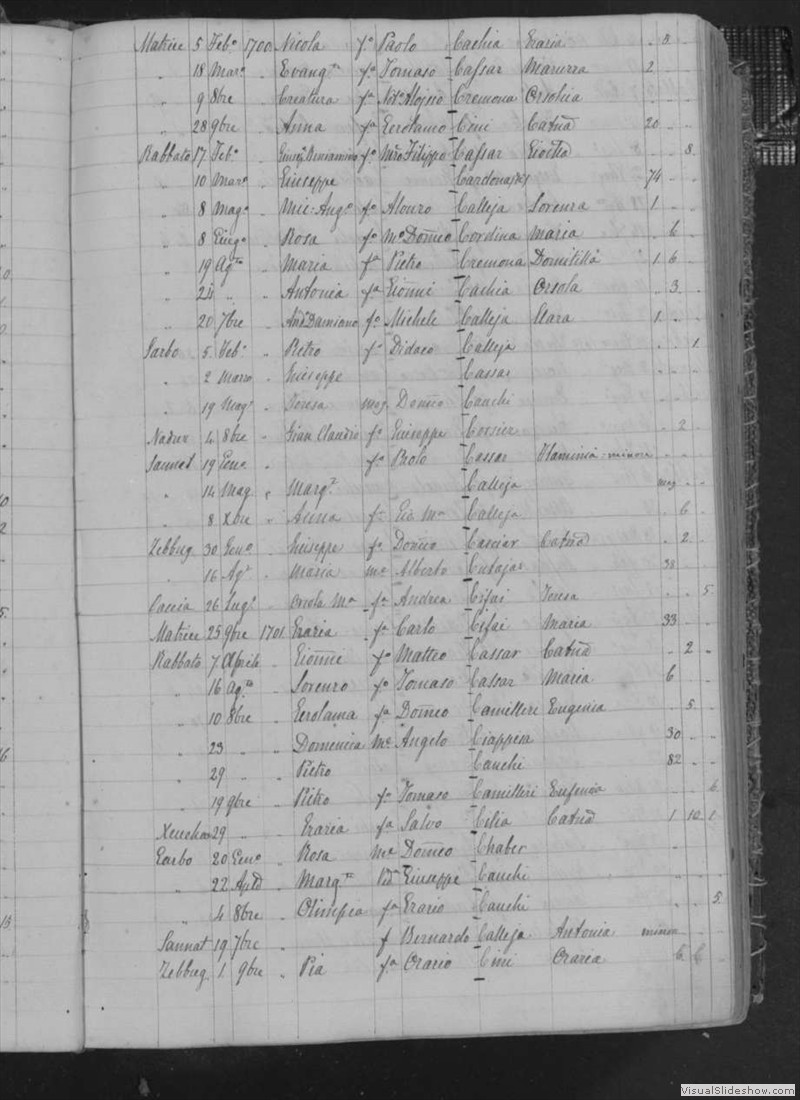 Matrice 5 Feb.º 1700 Nicola f.º Paolo Cachia Grazia 8
" 18 Mar.º " Evang.ta f.a Tomaso Cassar Maruzza 2
" 9 8bre " Creatura f.a Not.º Aloisio Cremona Orsolica
" 28 9bre " Anna f.a Gerolamo Cini Catnã 20
Rabbato 17 Feb.º " Beniamino f.º Mro Filippo Cassar 8
" 10 Mar.º " Giuseppe Cardona 74
" 8 Mag.º " Mic-Ang.º f.º Alonzo Calleja Lorenza 1
" 8 Giug.º " Rosa f.a M.º Domco Cordina Maria 6
" 19 Ag.to " Maria f.a Pietro Cremona Domitilla 1 6
" 24 " " Antonia f.a Gionni Cachia Orsola 3
" 20 7bre " And.a Damiano f.º Michele Calleja Clara 1
Garbo 5 Feb.º " Pietro f.º Didaco Calleja 1
" 2 Marzo " Giuseppe Cassar
" 19 Mag.º " Teresa mog Domco Cauchi
Nadur 4 8bre " Gian Claudio f.º Giuseppe Corsier 2
Sannat 19 Gen.º " f.a Paolo Cassar Flaminia minore
" 14 Mag. " Marg.ta Calleja mag
" 8 Xbre " Anna f. Gio Ma Calleja 6
Zebbug 30 Gen.º " Giuseppe f.º Domco Casciar Catnã 2
" 16 Ag.º " Maria m.e Alberto Cutajar 38
Caccia 26 Lug.º " Orsola M.a f.a Andrea Cifai Teresa 5
Matrice 25 9bre 1701 Grazia f.a Carlo Cifai Maria 33
Rabbato 7 Aprile " Gionni f.º Matteo Cassar Catnã 2
" 16 Ag.to " Lorenzo f.º Tomaso Cassar Maria 6
" 10 8bre " Gerolama f.a Domco Camilleri Eugenia 5
" 23 " " Domenica m.e Angelo Ciappesa 30
" 29 " Pietro Cauchi 82
" 19 9bre " Pietro f.º Tomaso Camilleri Eufemia 6
Xeuchia 29 " " Grazia f.a Salvo Cilia Catnã 1 10 1
Garbo 20 Gen.º " Rosa m.e Domco Chaber
" 22 " Marg.ta Vd.a Giuseppe Cauchi
" 4 8bre " Olimpia f.a Grazio Cauchi 5
Sannat 19 7bre " f Bernardo Calleja Antonia minore
Zebbug 1 9bre " Pia f.a Orazio Cini Grazia 6
VisualSlideshow.com